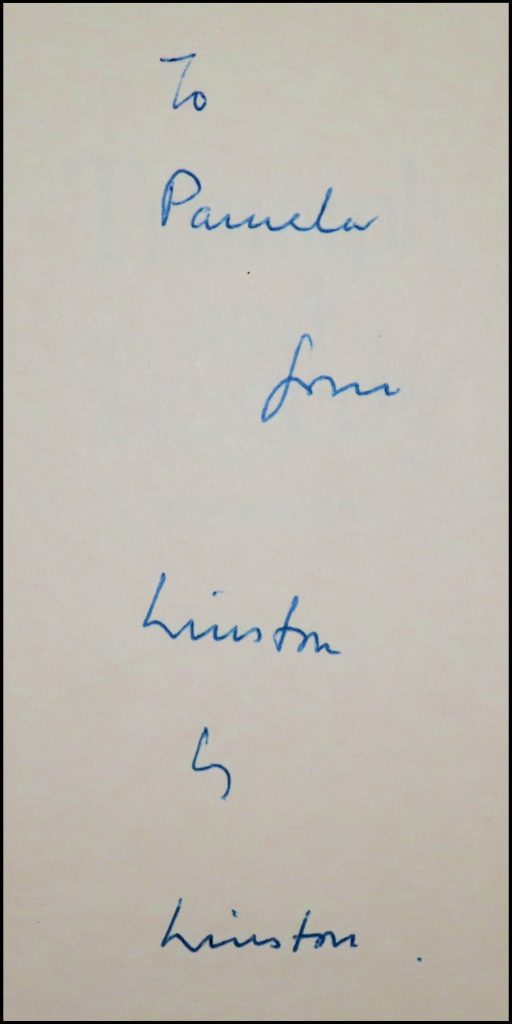 To
Pamela
from
Winston
by
Winston